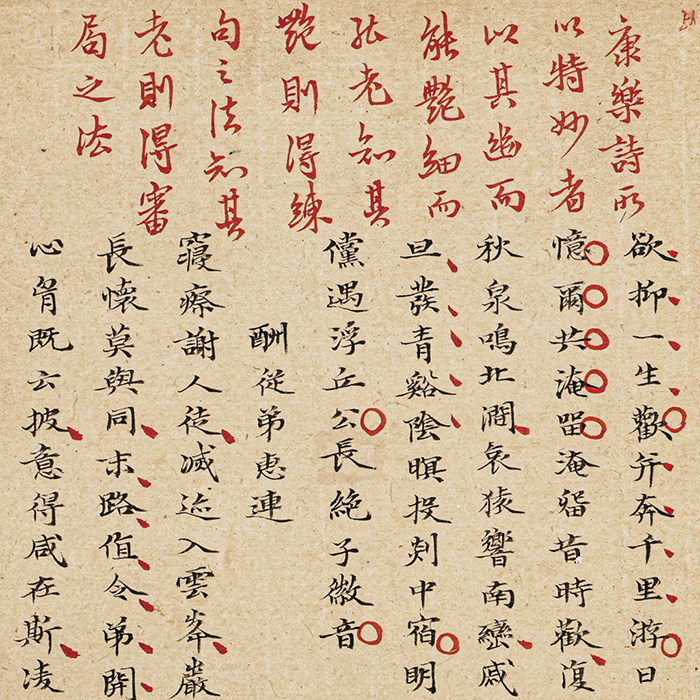 康樂詩所
以特妙者
以其幽而
能艷細而
能老知其
艷則得練
句之法知其
老則得審
局之法
欲抑一生歡并奔千里游日
憶爾共淹留淹留昔時歡復
秋泉鳴北澗哀猿響南巒戚
旦發青谿陰暝投剡中宿明
儻遇浮丘公長絶子徽音
酬從弟惠連
寢瘵謝人徒滅迹入雲峯巖
長懷莫與同末路值令弟開
心胷既云披意得咸在斯凌